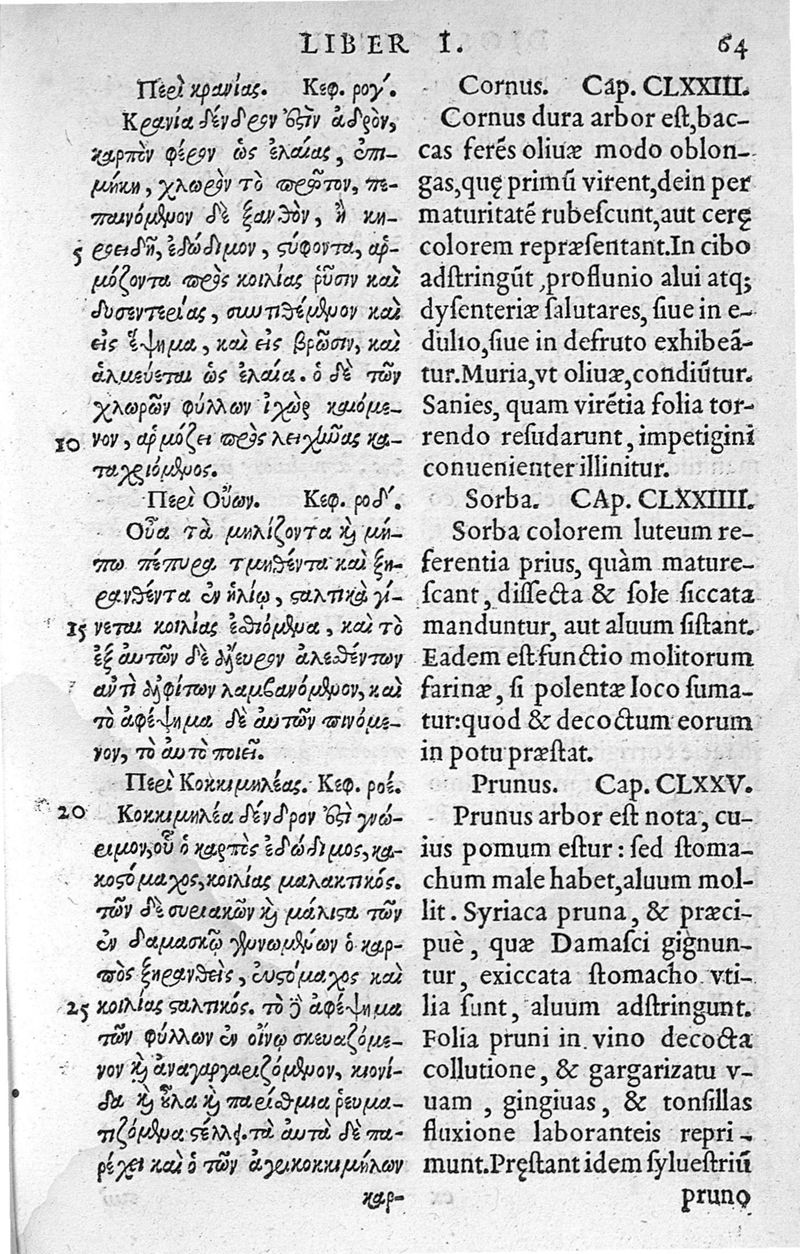 LIBER I. 64
Περὶ κρανίας. Κεφ. ρογ΄.
Κρανία δένδρον ἐστὶν ἁδρὸν,
καρπὸν φέρον ὡς ἐλαίας, ἐπι-
μήκη, χλωρὸν τὸ πρῶτον, πε-
παινόμενον δὲ ξανθὸν, ἢ κη-
5 ροειδῆ, ἐδώδιμον, στύφοντα, ἁρ-
μόζοντα πρὸς κοιλίας ῥύσιν καὶ
δυσεντερίας, συντιθέμενον καὶ
εἰς ἕψημα, καὶ εἰς βρῶσιν, καὶ
ἁλμεύεται ὡς ἐλαία. ὁ δὲ τῶν
χλωρῶν φύλλων ἰχὼρ καιόμε-
10 νον, ἁρμόζει πρὸς λειχῆνας κα-
ταχριόμενος.
Περὶ Οὔων. Κεφ. ροδ΄.
Οὖα τὰ μηλίζοντα καὶ μή-
πω πέπειρα τμηθέντα καὶ ξη-
ρανθέντα ἐν ἡλίῳ, σταλτικὰ γί-
15 νεται κοιλίας ἐσθιόμενα, καὶ τὸ
ἐξ αὐτῶν δὲ ἄλευρον ἀλεσθέντων
ἀντὶ ἀλφίτων λαμβανόμενον, καὶ
τὸ ἀφέψημα δὲ αὐτῶν πινόμε-
νον, τὸ αὐτὸ ποιεῖ.
Περὶ Κοκκιμηλέας. Κεφ. ροέ.
20 Κοκκιμηλέα δένδρον ἐστὶ γνώ-
ριμον, οὗ ὁ καρπὸς ἐδώδιμος, κα-
κοστόμαχος, κοιλίας μαλακτικός.
τῶν δὲ συριακῶν καὶ μάλιστα τῶν
ἐν δαμασκῷ γεννωμένων ὁ καρ-
πὸς ξηρανθεὶς, εὐστόμαχος καὶ
25 κοιλίας σταλτικός. τὸ δὲ ἀφέψημα
τῶν φύλλων ἐν οἴνῳ σκευαζόμε-
νον καὶ ἀναγαργαριζόμενον, κιονί-
δα καὶ οὖλα καὶ παρίσθμια ῥευμα-
τιζόμενα στέλλει. τὰ αὐτὰ δὲ πα-
ρέχει καὶ ὁ τῶν ἀγριοκοκκιμήλων
καρ-
Cornus. Cap. CLXXIII.
Cornus dura arbor est, bac-
cas ferẽs oliuæ modo oblon-
gas, quę primũ virent, dein per
maturitatẽ rubescunt, aut cerę
colorem repræsentant. In cibo
adstringũt, profluuio alui atq;
dysenteriæ salutares, siue in e-
dulio, siue in defruto exhibeã-
tur. Muria, vt oliuæ, condiũtur.
Sanies, quam virẽtia folia tor-
rendo resudarunt, impetigini
conuenienter illinitur.
Sorba. CAp. CLXXIIII.
Sorba colorem luteum re-
ferentia prius, quàm mature-
scant, dissecta & sole siccata
manduntur, aut aluum sistant.
Eadem est functio molitorum
farinæ, si polentæ loco suma-
tur: quod & decoctum eorum
in potu præstat.
Prunus. Cap. CLXXV.
Prunus arbor est nota, cu-
ius pomum estur: sed stoma-
chum male habet, aluum mol-
lit. Syriaca pruna, & præci-
puè, quæ Damasci gignun-
tur, exiccata stomacho vti-
lia sunt, aluum adstringunt.
Folia pruni in vino decocta
collutione, & gargarizatu v-
uam, gingiuas, & tonsillas
fluxione laboranteis repri-
munt. Pręstant idem syluestriũ
pruno